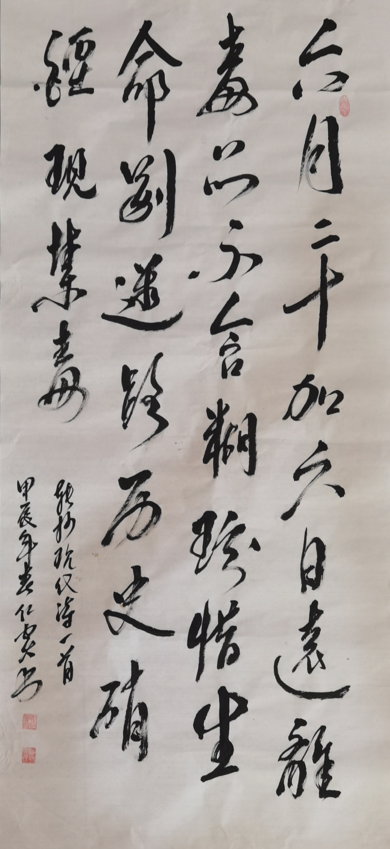 六月二十加六日遠離
毒品不含糊珍惜生
命别迷路历史硝
烟現禁毒
抄現代诗一首
甲辰年春仁